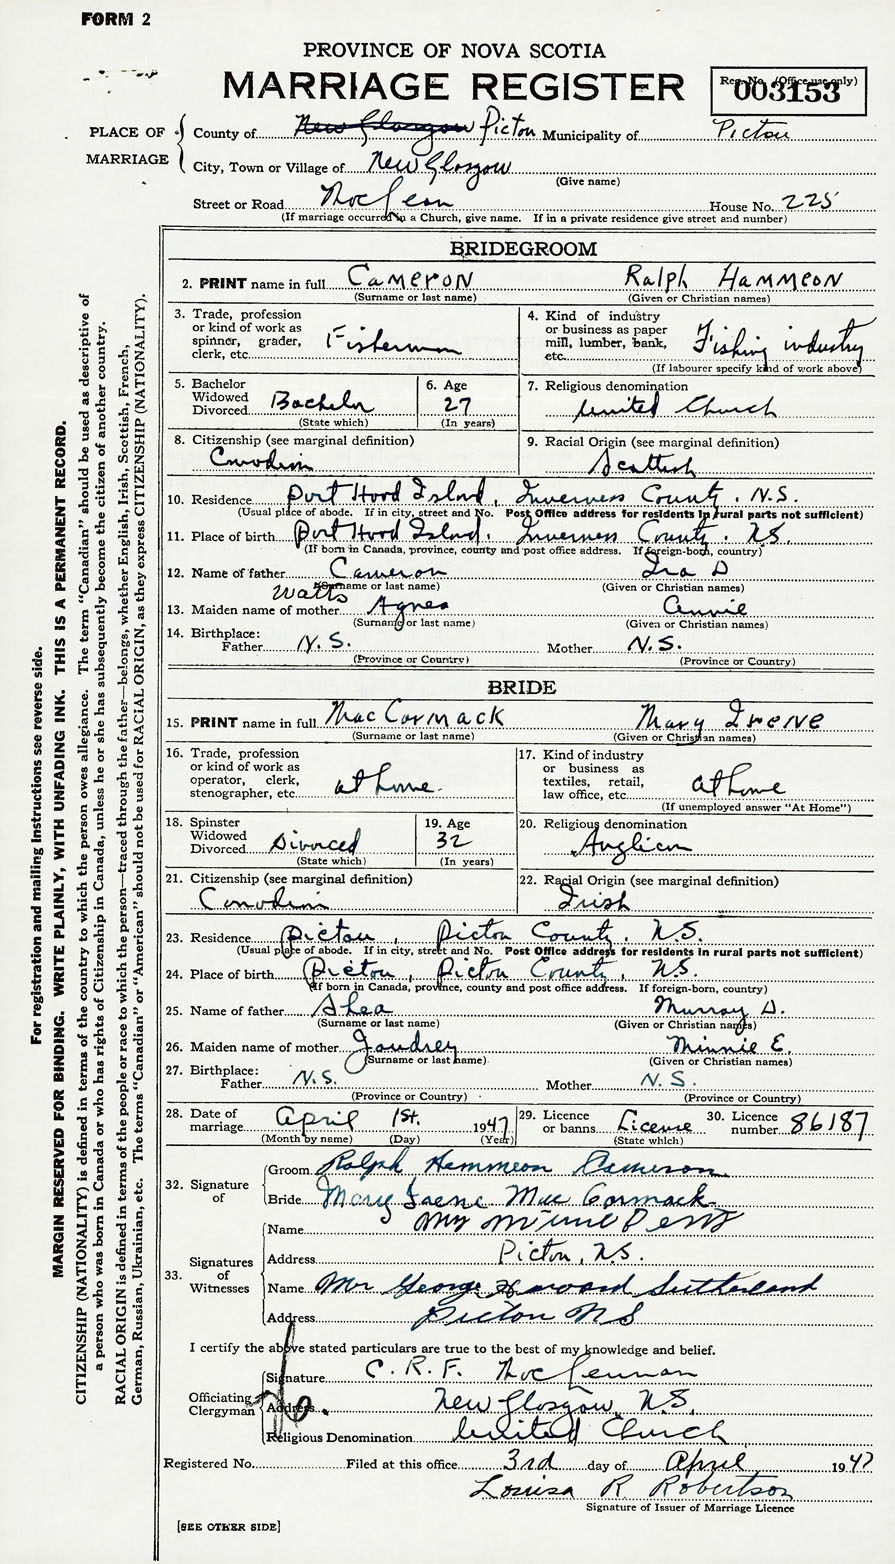 FORM 2
PROVINCE OF NOVA SCOTIA
MARRIAGE REGISTER
Reg. No. (Office use only)
003153
PLACE OF MARRIAGE
County of New Glasgow Pictou Municipality of Pictou
City, Town or Village of New Glasgow
(Give name)
Street or Road MacLean House No. 225
(If marriage occurred in a Church, give name. If in a private residence give street and number)
BRIDEGROOM
2. PRINT name in full Cameron Ralph Hammeon
(Surname or last name) (Given or Christian names)
3. Trade, profession or kind of work as spinner, grader, clerk, etc. Fisherman
4. Kind of industry or business as paper mill, lumber, bank, etc. Fishing industry
(If labourer specify kind of work above)
5. Bachelor Widowed Divorced Bachelor
(State which)
6. Age 27
(In years)
7. Religious denomination United Church
8. Citizenship (see marginal definition) Canadian
9. Racial Origin (see marginal definition) Scottish
10. Residence Port Hood Island, Inverness County. N.S.
(Usual place of abode. If in city, street and No. Post Office address for residents in rural parts not sufficient)
11. Place of birth Port Hood Island. Inverness County. N.S.
(If born in Canada, province, county and post office address. If foreign-born, country)
12. Name of father Cameron Ira D
(Surname or last name) (Given or Christian names)
Watts
13. Maiden name of mother Agnes Annie
(Surname or last name) (Given or Christian names)
14. Birthplace: Father N.S. Mother N.S.
(Province or Country) (Province or Country)
BRIDE
15. PRINT name in full MacCormack Mary Irene
(Surname or last name) (Given or Christian names)
16. Trade, profession or kind of work as operator, clerk, stenographer, etc. at home
17. Kind of industry or business as textiles, retail, law office, etc. at home
(If unemployed answer "At Home")
18. Spinster Widowed Divorced Divorced
(State which)
19. Age 32
(In years)
20. Religious denomination Anglican
21. Citizenship (see marginal definition) Canadian
22. Racial Origin (see marginal definition) Irish
23. Residence Pictou, Pictou County, N.S.
(Usual place of abode. If in city, street and No. Post Office address for residents in rural parts not sufficient)
24. Place of birth Pictou, Pictou County, N.S.
(If born in Canada, province, county and post office address. If foreign-born, country)
25. Name of father Shea Murray D.
(Surname or last name) (Given or Christian names)
26. Maiden name of mother Jaudrey Minnie E.
(Surname or last name) (Given or Christian names)
27. Birthplace: Father N.S. Mother N.S.
(Province or Country) (Province or Country)
28. Date of marriage April 1st. 1947
(Month by name) (Day) (Year)
29. Licence or banns License
(State which)
30. Licence number 86187
32. Signature of
Groom Ralph Hammeon Cameron
Bride Mary Irene MacCormack
33. Signatures of Witnesses
Name
Address Pictou, N.S.
Name Mr George Sutherland
Address Pictou N S
I certify the above stated particulars are true to the best of my knowledge and belief.
Officiating Clergyman
Signature C. R. F. MacLennan
Address New Glasgow, N.S.
Religious Denomination United Church
Registered No. Filed at this office 3rd day of April 1947
Louisa R Robertson
Signature of Issuer of Marriage Licence
[SEE OTHER SIDE]
For registration and mailing instructions see reverse side.
MARGIN RESERVED FOR BINDING. WRITE PLAINLY, WITH UNFADING INK. THIS IS A PERMANENT RECORD.
CITIZENSHIP (NATIONALITY) is defined in terms of the country to which the person owes allegiance. The term "Canadian" should be used as descriptive of
a person who was born in Canada or who has rights of Citizenship in Canada, unless he or she has subsequently become the citizen of another country.
RACIAL ORIGIN is defined in terms of the people or race to which the person—traced through the father—belongs, whether English, Irish, Scottish, French,
German, Russian, Ukrainian, etc. The terms "Canadian" or "American" should not be used for RACIAL ORIGIN, as they express CITIZENSHIP (NATIONALITY).